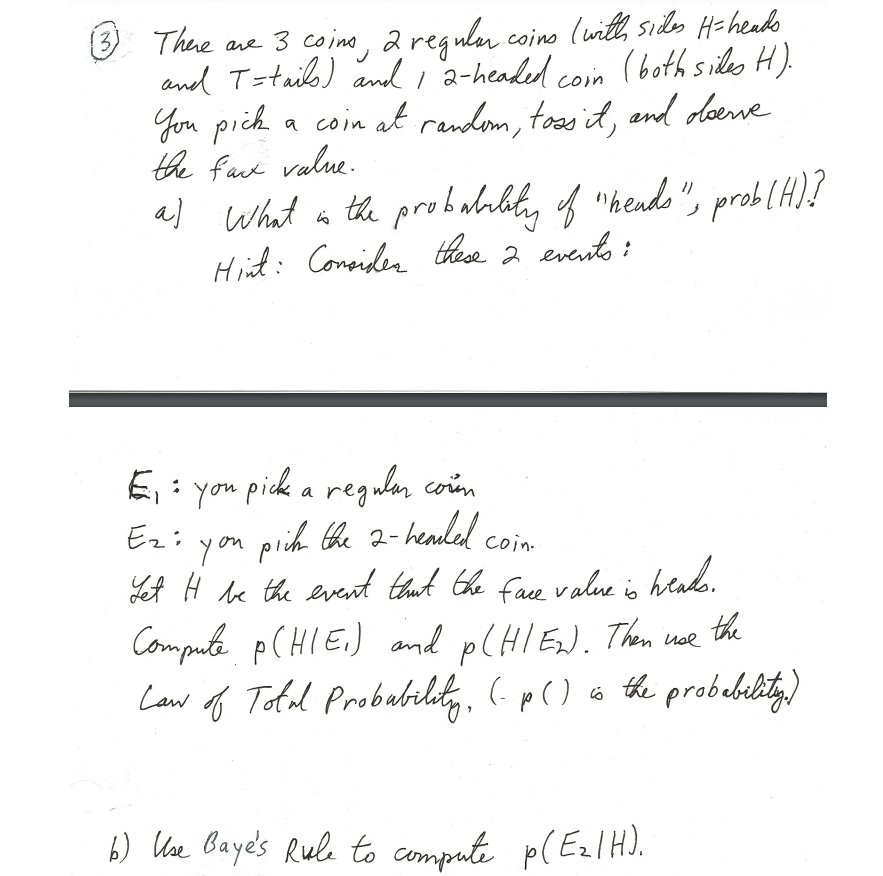 3 There are 3 coins, 2 regular coins (with sides H=heads
and T=tails) and 1 2-headed coin (both sides H).
You pick a coin at random, toss it, and observe
the face value.
a) What is the probability of "heads", prob(H)?
Hint: Consider these 2 events:
E₁: you pick a regular coin
E₂: you pick the 2-headed coin.
Let H be the event that the face value is heads.
Compute p(H|E₁) and p(H|E₂). Then use the
Law of Total Probability. (- p() is the probability.)
b) Use Baye's Rule to compute p(E₂|H).